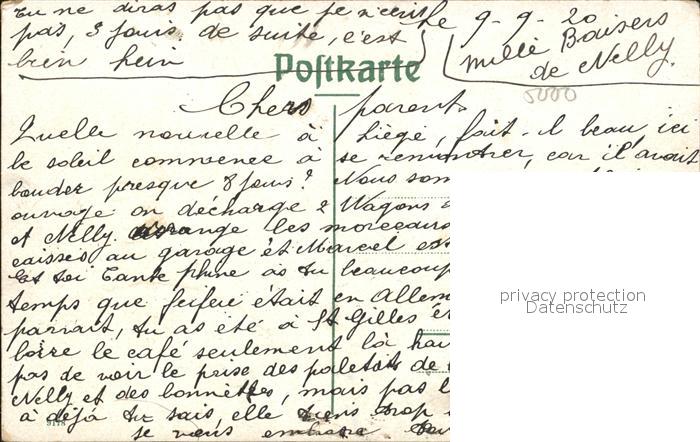 Tu ne diras pas que je n'écris
le 9-9-20
pas, 3 jours de suite, c'est
bien hein
mille Baisers
de Nelly.
Postkarte
5000
Chers parents
Quelle nouvelle à Liège, fait-il beau, ici
le soleil commence à se remontrer, car il avait
bouder presque 8 jours? Nous som
ouvrage on décharge 2 Wagons
et Nelly arrange les morceaux
caisses au garage et Marcel est
Et toi Tante phine as tu beaucoup
temps que fifieu était en Allem
parrait, tu as été à St Gilles et
boire le café seulement là
pas de voir le prise des paletots de
Nelly et des bonnettes, mais pas
à déjà tu sais, elle tiens trop
9178
se vous embrasse
privacy protection
Datenschutz